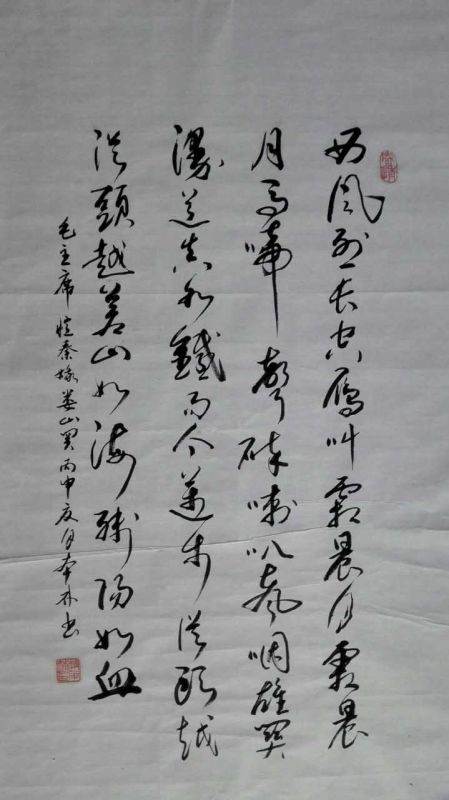 西风烈长空雁叫霜晨月霜晨
月马啼声碎喇叭声咽雄関
漫道真如鐵而今迈步从头越
从頭越苍山如海残阳如血
毛主席憶秦娥娄山関丙申夏月林书